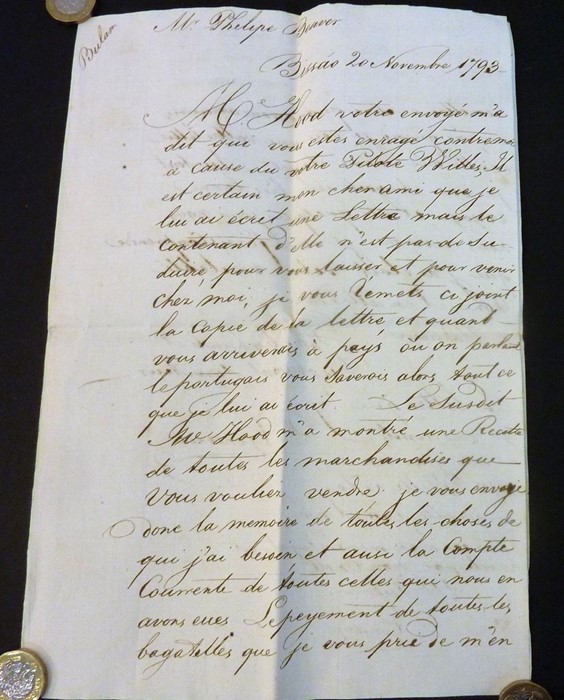 Bulam
Mr. Phelipe Beaver
Bissáo 20 Novembre 1793
M. Hood votre envoyé m'a
dit que vous estes enragé contre moi
a cause du votre Pilote Willes, Il
est certain mon cher ami que je
lui ai écrit une Lettre mais le
contenant d'elle n'est pas de Se-
duire, pour vous laisser et pour venir
chez moi, je vous remets ci joint
la Copie de la lettre et quand
vous arriverais à pays ou on parlant
le portugais vous saverais alors tout ce
que je lui ai écrit. Le Susdit
Mr. Hood m'a montré une Recette
de toutes les marchandises que
vous voulier vendre, je vous envoye
donc la memoire de toutes les choses de
qui j'ai besoin et ausi la Compte
Courrente de toutes celles qui nous en
avons eues Le peyement de toutes les
bagatelles que je vous prie de m'en